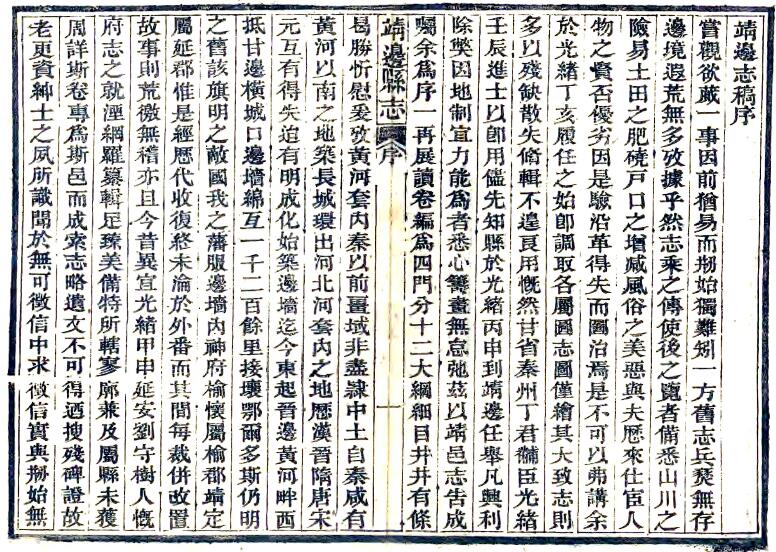 靖邊志稿序
嘗觀欲蕆一事因前猶易而剏始獨難矧一方舊志兵燹無存
邊境遐荒無多攷據乎然志乘之傳使後之覽者備悉山川之
險易土田之肥磽戶口之增減風俗之美惡與夫歷來仕宦人
物之賢否優劣因是驗沿革得失而圖治焉是不可以弗講余
於光緒丁亥履任之始卽調取各屬圖志圖僅繪其大致志則
多以殘缺散失脩輯不遑良用慨然甘省秦州丁君黼臣光緒
壬辰進士以卽用儘先知縣於光緒丙申到靖邊任舉凡興利
除獘因地制宜力能爲者悉心籌畫無怠弛茲以靖邑志告成
囑余爲序一再展讀卷編爲四門分十二大綱細目井井有條
靖邊縣志 序 一
曷勝忻慰爰攷黃河套內秦以前畺域非盡隸中土自秦咸有
黃河以南之地築長城環出河北河套內之地歷漢晉隋唐宋
元互有得失迨有明成化始築邊墻迄今東起晉邊黃河畔西
抵甘邊橫城口邊墻綿亙一千二百餘里接壤鄂爾多斯仍明
之舊該旗明之敵國我之藩服邊墻內神府榆懷屬榆郡靖定
屬延郡惟是經歷代收復終未淪於外番而其間每裁併改置
故事則荒徼無稽亦且今昔異宜光緒甲申延安劉守樹人慨
府志之就湮網羅纂輯足臻美備特所轄寥廓兼及屬縣未獲
周詳斯卷專爲斯邑而成索志略遺文不可得迺搜殘碑證故
老更資紳士之夙所識聞於無可徵信中求徵信實與剏始無